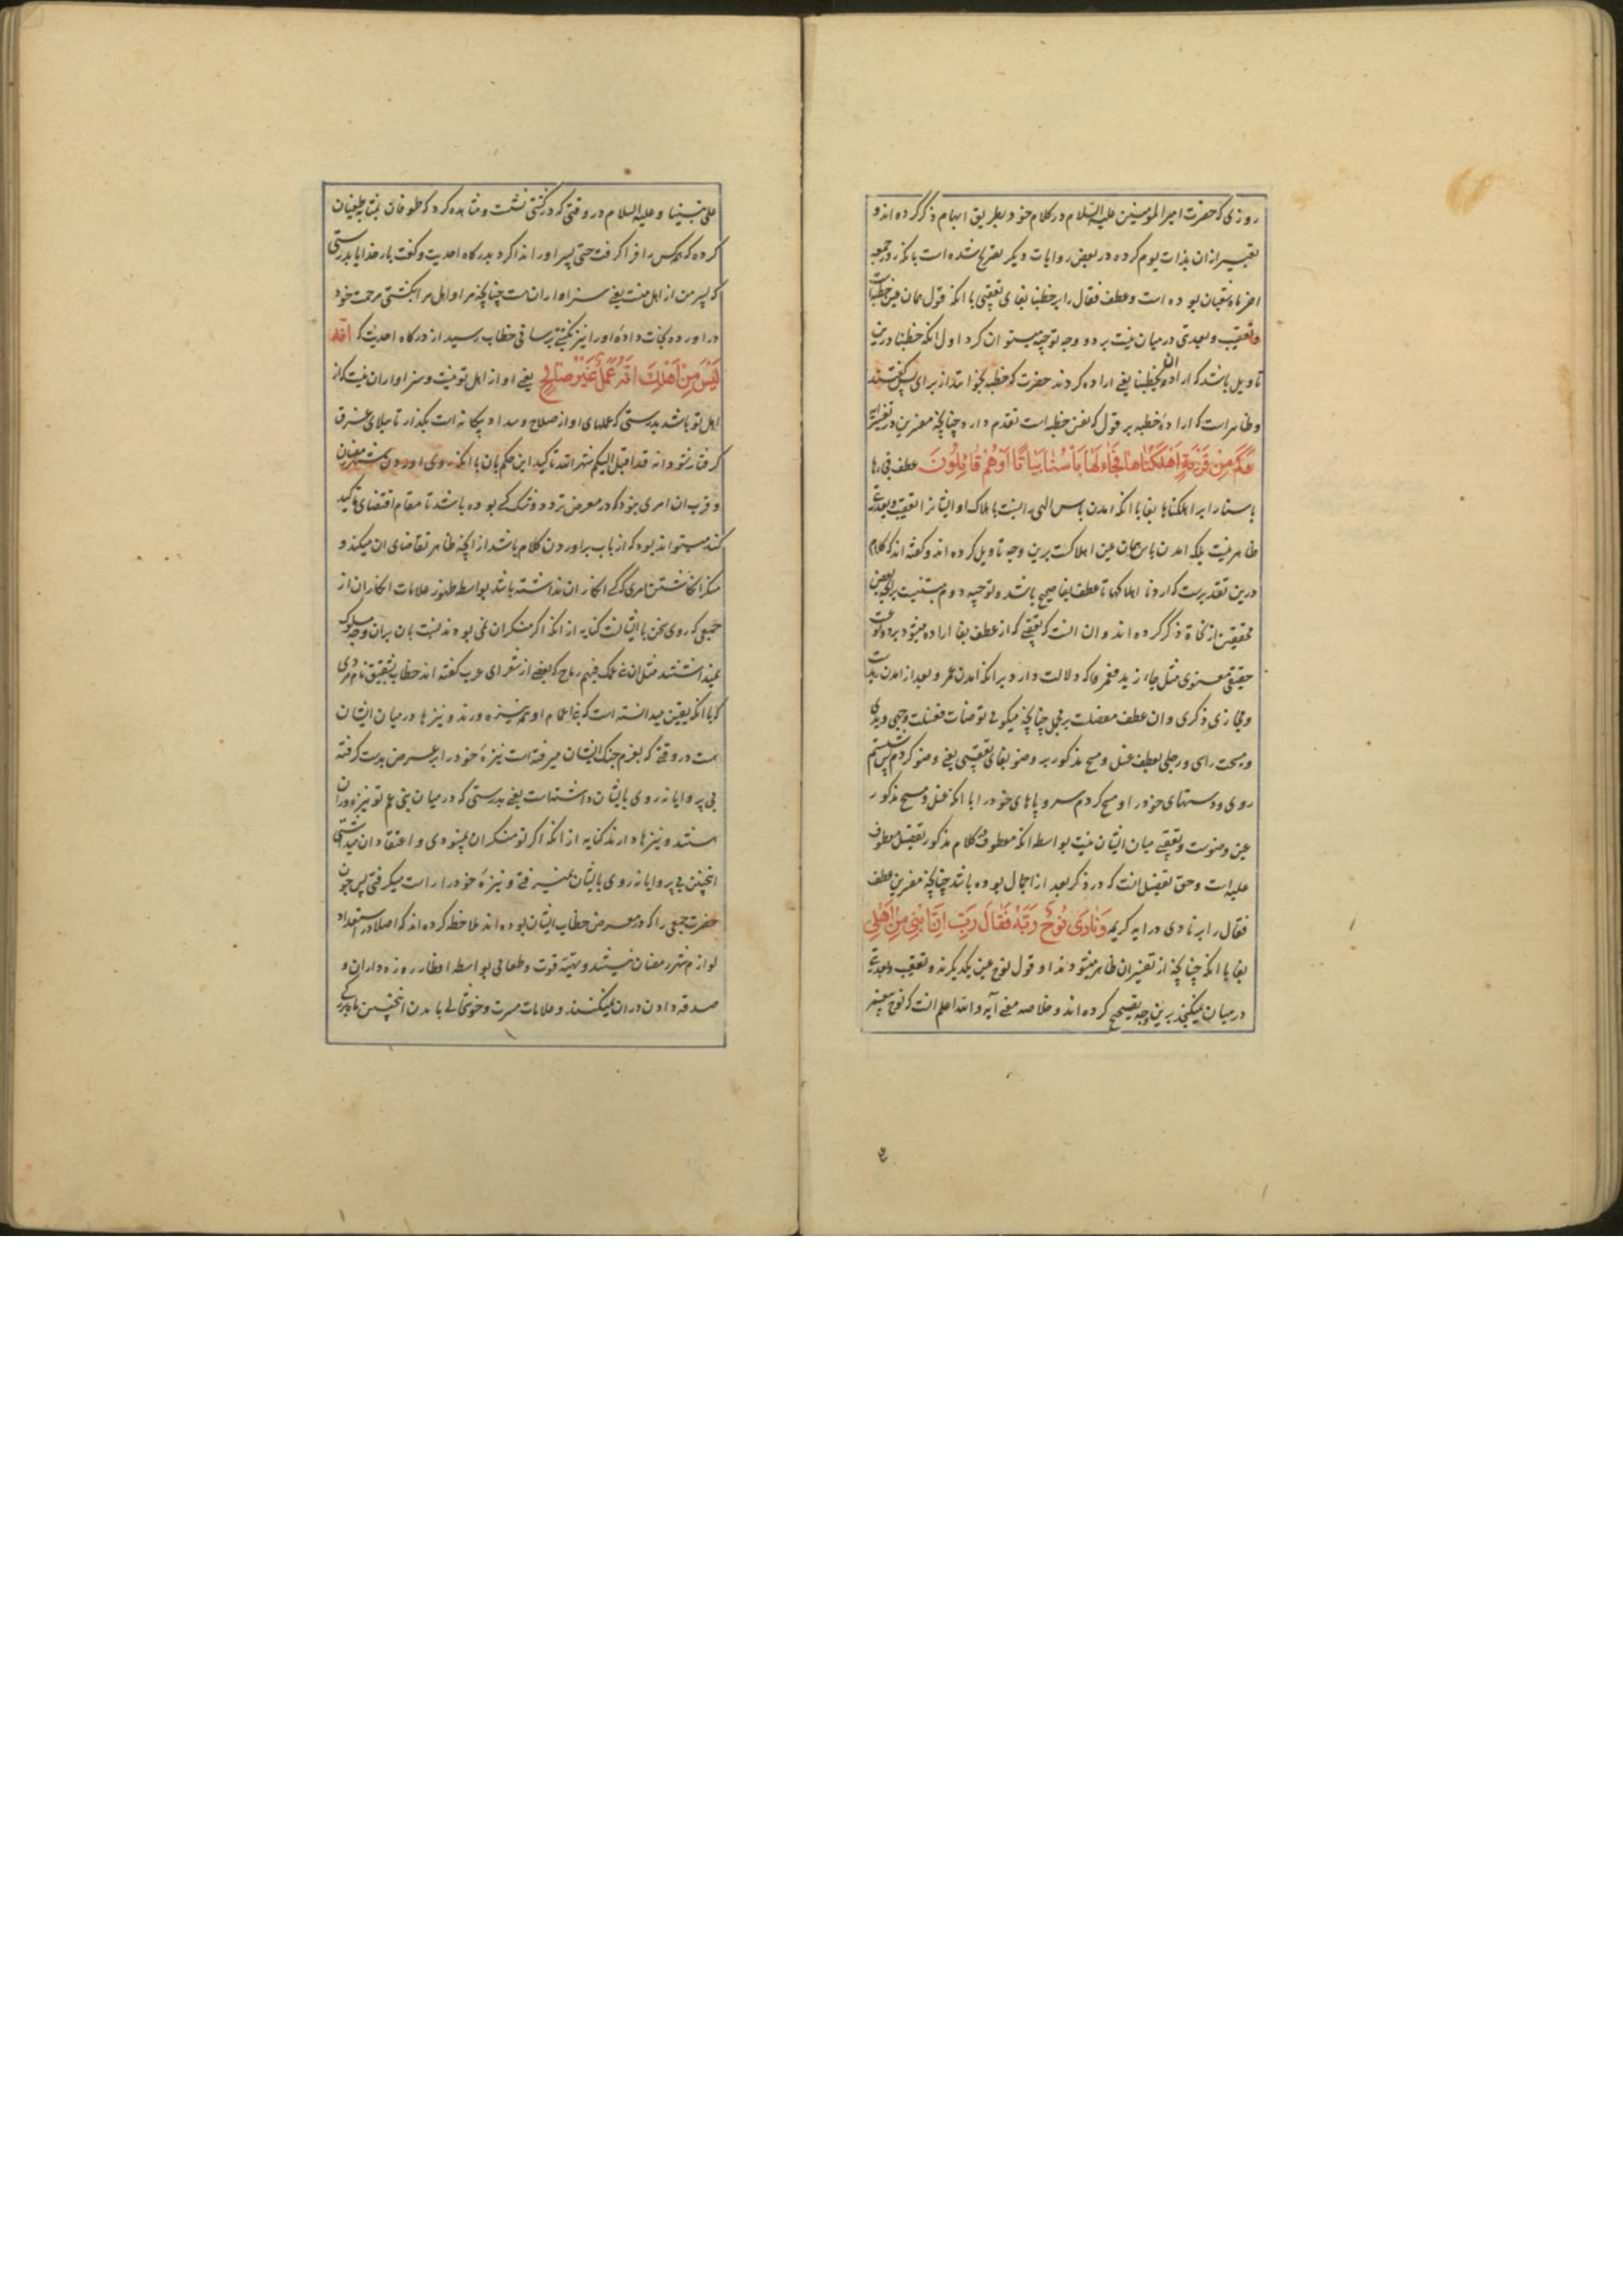 روزی که حضرت امیر المومنین علیه السلام در کلام خود بطریق ابهام ذکر کرده اند و
تعبیر از ان بذات یوم کرده در بعض روایات دیگر تصریح شده است بانکه روز جمعه
اخر ماه شعبان بوده است و عطف فقال را بر خطبنا بفای تعقیبی با انکه قول همان عین خطبه است
و تعقیب و بعدیتی در میان نیست بر دو وجه توجیه میتوان کرد اول انکه خطبنا درین
تاویل باشد که اراد ان یخطبنا یعنی اراده کردند حضرت که خطبه بخوانند از برای ما پس گفتند
و ظاهر است که ارادهٔ خطبه بر قول که نفس خطبه است تقدم دارد چنانچه مفسرین در تفسیر ایه
وَكَمْ مِنْ قَرْيَةٍ اَهْلَكْنَاهَا فَجَاءَهَا بَأْسُنَا بَيَاتًا اَوْ هُمْ قَائِلُونَ عطف فجاءها
باسنا را بر اهلکناها بفا با انکه امدن باس الهی نسبت باهلاک او ایشانرا تعقیب و بعدیتی
ظاهر نیست بلکه امدن باس همان عین اهلاکست برین وجه تاویل کرده اند و گفته اند که کلام
درین تقدیرست که اردنا اهلاکها تا عطف بفا صحیح باشد و توجیه دوم مبتنیست بر انچه بعض
محققین از نحاة ذکر کرده اند و ان انست که تعقیبی که از عطف بفا اراده میشود بر دو نوعست
حقیقی معنوی مثل جاء زید فعمر که دلالت دارد بر انکه امدن عمر و بعد از امدن زیدست
و مجازی ذکری و ان عطف مفصلست بر مجمل چنانچه میگوئی توضأت فغسلت وجهی و یدی
و مسحت راسی و رجلی بعطف غسل و مسح مذکور بر وضو بفای تعقیبی یعنی وضو کردم پس شستم
روی و دستهای خود را و مسح کردم سر و پاهای خود را با انکه غسل و مسح مذکور
عین وضوست و تعقیبی میان ایشان نیست بواسطه انکه معطوف در کلام مذکور تفصیل معطوف
علیه است و حق تفصیل انست که در ذکر بعد از اجمال بوده باشد چنانچه مفسرین عطف
فقال را بر نادی در ایه کریمه وَنَادَى نُوحٌ رَبَّهُ فَقَالَ رَبِّ اِنَّ ابْنِي مِنْ اَهْلِي
بفا با انکه چنانچه از تفسیر ان ظاهر میشود ندا و قول نوح عین یکدیگرند و تعقیب و بعدیتی
در میان نمیگنجد برین وجه تصحیح کرده اند و خلاصه معنی آیه و الله اعلم انست که نوح پیغمبر
علی نبینا و علیه السلام در وقتی که در کشتی نشست و مشاهده کرد که طوفان بمثابه طغیان
کرده که همه کس را فرا گرفت حتی پسر او را ندا کرد بدرگاه احدیت و گفت بار خدایا بدرستی
که پسر من از اهل منست یعنی سزاوار انست چنانچه مرا و اهل مرا بکشتی مرحمت خود
در اورده نجات دادهٔ او را نیز بکشتی برسانی خطاب رسید از درگاه احدیت که اِنَّهُ
لَيْسَ مِنْ اَهْلِكَ اِنَّهُ عَمَلٌ غَيْرُ صَالِحٍ یعنی او از اهل تو نیست و سزاوار ان نیست که از
اهل تو باشد بدرستی که عملهای او از صلاح و سداد بیگانه است بگذار تا ببلای غرق
گرفتار شود انه قد اقبل الیکم شهر الله تاکید این حکم بان با انکه روی اوردن شهر رمضان
و قرب ان امری نبود که در معرض تردد و شک کسی بوده باشد تا مقام اقتضای تاکید
کند میتواند بود که از باب بر اوردن کلام باشد از انچه ظاهر تقاضای ان میکند و
منکر انگاشتن امری کسی که انکار ان نداشته باشد بواسطه ظهور علامات انکار ان از
جمعی که روی سخن با ایشانست کنایه از انکه اگر منکر ان نمی بودند نسبت بان بر ان وجه سلوک
نمیداشتند مثل ان بنی عمک فیهم رماح که بعضی از شعرای عرب گفته اند خطاب بشقیق نام مردی
که با انکه یقین میدانسته است که بنی اعمام او همه نیزه ورند و نیزها در میان ایشان
هست در وقتی که بعزم جنگ ایشان میرفته است نیزهٔ خود را بر عرض بدست گرفته
بی پروایانه روی بایشان داشته است یعنی بدرستی که در میان بنی عم تو نیزه وران
هستند و نیزها دارند کنایه از انکه اگر تو منکر ان نمیبودی و اعتقاد ان میداشتی
انچنین بی پروایانه روی بایشان نمیرفتی و نیزهٔ خود را راست میگرفتی پس چون
حضرت جمعی را که در معرض خطاب ایشان بوده اند ملاحظه کرده اند که اصلا در استعداد
لوازم شهر رمضان نیستند و تهیئه قوت و طعامی بواسطه افطار روزه داران و
صدقه دادن در ان نمیکنند و علامات مسرت و خوشحالی بامدن انچنین ماه